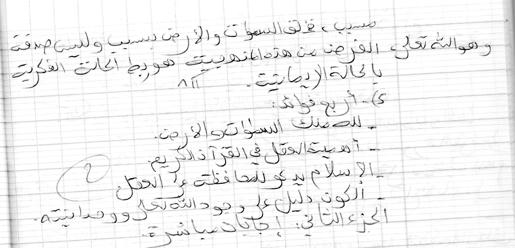 مسبب، فخلق السموات والارض بسبب وليس صدفة
وهو الله تعالى، الغرض من هذه المنهجية هو ربط الحالة الفكرية
بالحالة الإيمانية.
5) - أربع فوائد:
- لله ملك السموات والارض.
- أهمية العقل في القرآن الكريم.
- الإسلام يدعو للمحافظة على العقل
- الكون دليل على وجود الله تعالى ووحدانيته.
الجزء الثاني: إجابات مباشرة.